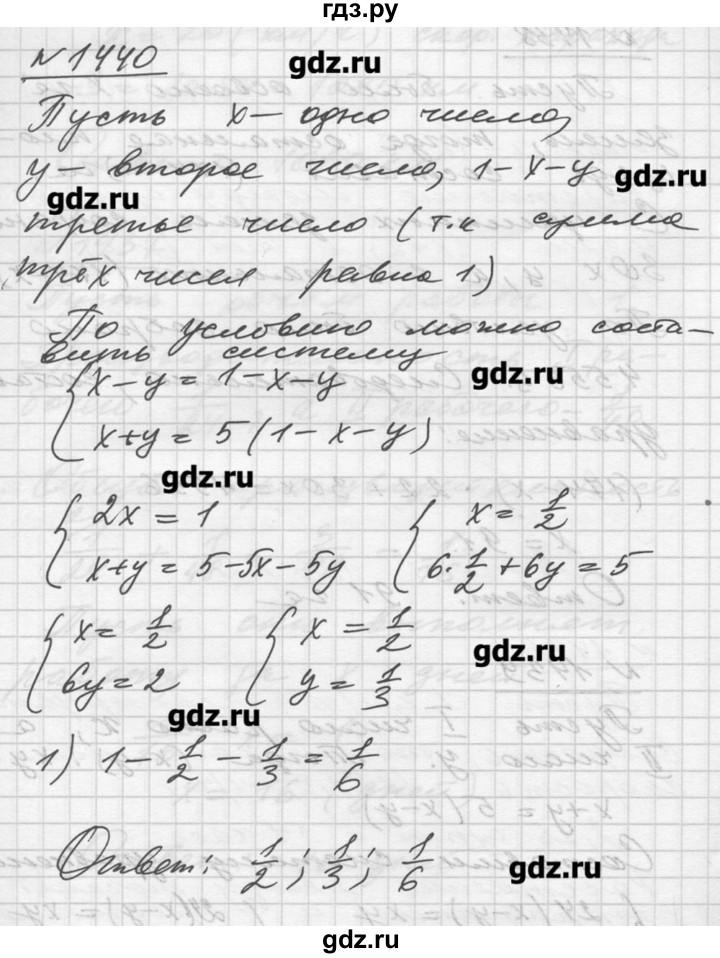 гдз.ру
№1440
gdz.ru
Пусть x — одно число,
y — второе число, 1-x-y
gdz.ru
gdz.ru
третье число (т.к сумма
трёх чисел равна 1)
По условию можно соста-
вить систему
x-y=1-x-y
gdz.ru
x+y=5(1-x-y)
gdz.ru
2x=1
x+y=5-5x-5y
x=1/2
6·1/2+6y=5
x=1/2
6y=2
x=1/2
y=1/3
gdz.ru
gdz.ru
1) 1-1/2-1/3=1/6
Ответ: 1/2; 1/3; 1/6
gdz.ru
gdz.ru